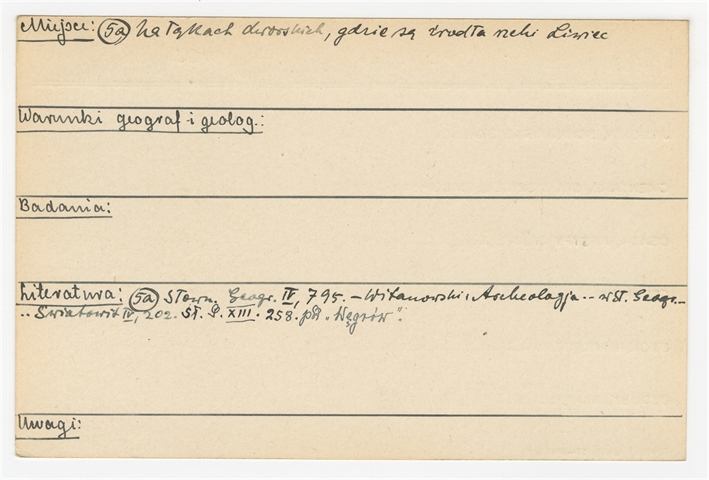 Miejsce: (5a) Na łąkach dworskich, gdzie są źródła rzeki Liwiec
Warunki geograf. i geolog.:
Badania:
Literatura: (5a) Słown. Geogr. IV, 795. – Witanowski: Archeologja .. w Sł. Geogr. –
.. Światowit IV, 202. Sł. G. XIII. 258. pd. "Węgrów".
Uwagi: